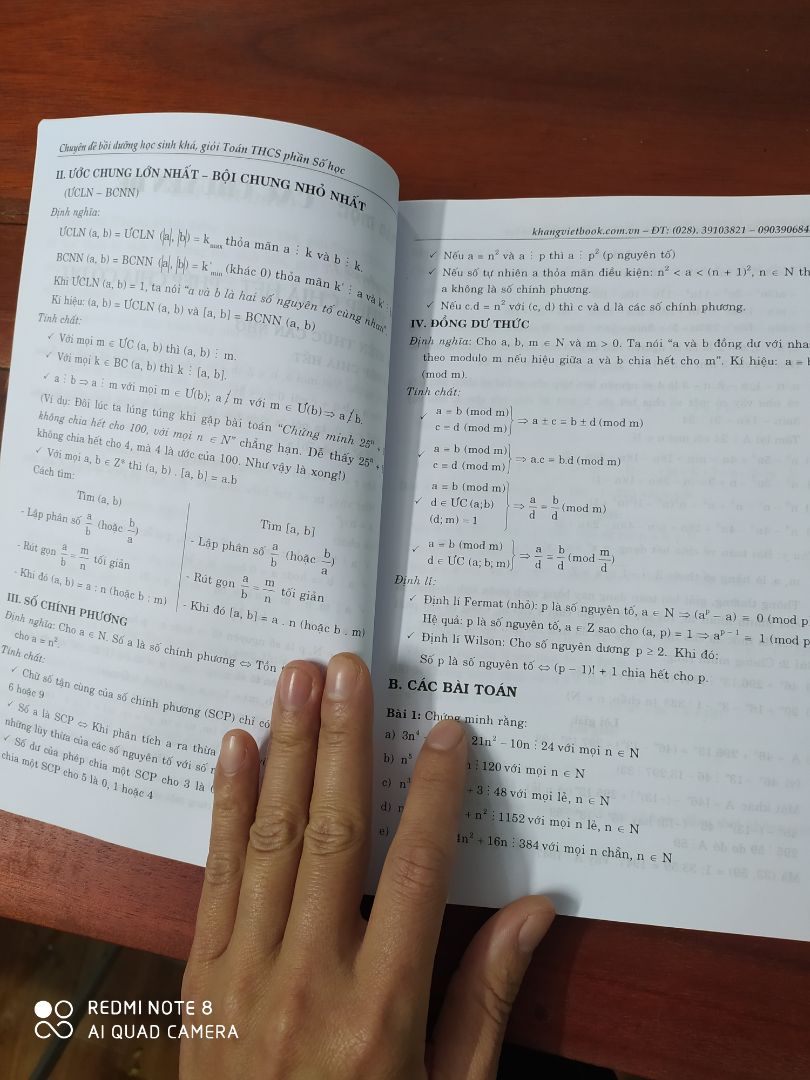 Chuyên đề bồi dưỡng học sinh khá, giỏi Toán THCS phần Số học
II. ƯỚC CHUNG LỚN NHẤT – BỘI CHUNG NHỎ NHẤT
(ƯCLN – BCNN)
Định nghĩa:
ƯCLN (a, b) = ƯCLN (|a|, |b|) = k max thỏa mãn a ⋮ k và b ⋮ k.
BCNN (a, b) = BCNN (|a|, |b|) = k' (khác 0) thỏa mãn k' ⋮ a và k' ⋮
Khi ƯCLN (a, b) = 1, ta nói "a và b là hai số nguyên tố cùng nhau"
Kí hiệu: (a, b) = ƯCLN (a, b) và [a, b] = BCNN (a, b)
Tính chất:
✓ Với mọi m ∈ ƯC (a, b) thì (a, b) ⋮ m.
✓ Với mọi k ∈ BC (a, b) thì k ⋮ [a, b].
✓ a ⋮ b ⇒ a ⋮ m với mọi m ∈ Ư(b); a ⋮̸ m với m ∈ Ư(b) ⇒ a ⋮̸ b.
(Ví dụ: Đôi lúc ta lúng túng khi gặp bài toán "Chứng minh 25ⁿ +
không chia hết cho 100, với mọi n ∈ N" chẳng hạn. Dễ thấy 25ⁿ +
không chia hết cho 4, mà 4 là ước của 100. Như vậy là xong!)
✓ Với mọi a, b ∈ Z* thì (a, b) . [a, b] = a.b
Cách tìm:
Tìm (a, b)
- Lập phân số a/b (hoặc b/a)
- Rút gọn a/b = m/n tối giản
- Khi đó (a, b) = a : n (hoặc b : m)
Tìm [a, b]
- Lập phân số a/b (hoặc b/a)
- Rút gọn a/b = m/n tối giản
- Khi đó [a, b] = a . n (hoặc b . m)
III. SỐ CHÍNH PHƯƠNG
Định nghĩa: Cho a ∈ N. Số a là số chính phương ⇔ Tồn
cho a = n².
Tính chất:
✓ Chữ số tận cùng của số chính phương (SCP) chỉ có
6 hoặc 9
✓ Số a là SCP ⇔ Khi phân tích a ra thừa
những lũy thừa của các số nguyên tố với số
✓ Số dư của phép chia một SCP cho 3 là
chia một SCP cho 5 là 0, 1 hoặc 4
khangvietbook.com.vn – ĐT: (028). 39103821 – 090390684
✓ Nếu a = n² và a ⋮ p thì a ⋮ p² (p nguyên tố)
✓ Nếu số tự nhiên a thỏa mãn điều kiện: n² < a < (n + 1)², n ∈ N th
a không là số chính phương.
✓ Nếu c.d = n² với (c, d) thì c và d là các số chính phương.
IV. ĐỒNG DƯ THỨC
Định nghĩa: Cho a, b, m ∈ N và m > 0. Ta nói "a và b đồng dư với nha
theo modulo m nếu hiệu giữa a và b chia hết cho m". Kí hiệu: a ≡
(mod m).
Tính chất:
✓ a ≡ b (mod m)
c ≡ d (mod m) } ⇒ a ± c ≡ b ± d (mod m)
✓ a ≡ b (mod m)
c ≡ d (mod m) } ⇒ a.c ≡ b.d (mod m)
a ≡ b (mod m)
✓ d ∈ ƯC (a;b) } ⇒ a/d ≡ b/d (mod m)
(d; m) = 1
✓ a ≡ b (mod m)
d ∈ ƯC (a; b; m) } ⇒ a/d ≡ b/d (mod m/d)
Định lí:
✓ Định lí Fermat (nhỏ): p là số nguyên tố, a ∈ N ⇒ (aᵖ – a) ≡ 0 (mod p
Hệ quả: p là số nguyên tố, a ∈ Z sao cho (a, p) = 1 ⇒ aᵖ⁻¹ ≡ 1 (mod p
✓ Định lí Wilson: Cho số nguyên dương p ≥ 2. Khi đó:
Số p là số nguyên tố ⇔ (p – 1)! + 1 chia hết cho p.
B. CÁC BÀI TOÁN
Bài 1: Chứng minh rằng:
a) 3n⁴ 21n² – 10n ⋮ 24 với mọi n ∈ N
b) n⁵ n ⋮ 120 với mọi n ∈ N
c) n³ + 3 ⋮ 48 với mọi lẻ, n ∈ N
d) n + n² ⋮ 1152 với mọi n lẻ, n ∈ N
e) 4n² + 16n ⋮ 384 với mọi n chẵn, n ∈ N
REDMI NOTE 8
AI QUAD CAMERA